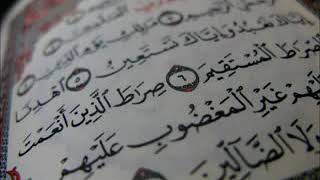 إِيَّاكَ نَعْبُدُ وَإِيَّاكَ نَسْتَعِينُ ۝ اهْدِنَا
الصِّرَاطَ الْمُسْتَقِيمَ ۝٦ صِرَاطَ الَّذِينَ أَنْعَمْتَ
عَلَيْهِمْ غَيْرِ الْمَغْضُوبِ عَلَيْهِمْ
وَلَا الضَّالِّينَ